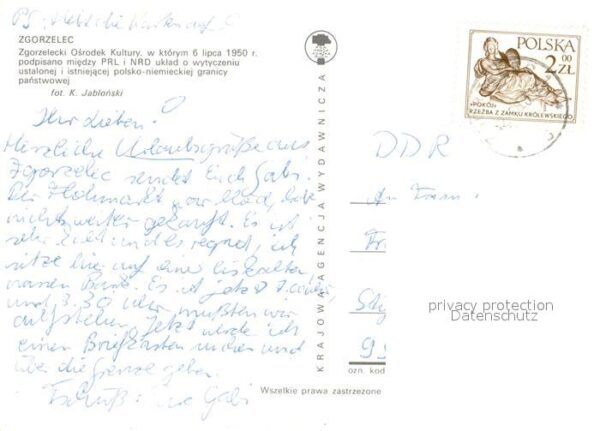 PS: Hebt die Karten auf!
ZGORZELEC
Zgorzelecki Ośrodek Kultury, w którym 6 lipca 1950 r.
podpisano między PRL i NRD układ o wytyczeniu
ustalonej i istniejącej polsko-niemieckiej granicy
państwowej
fot. K. Jabłoński
Ihr Lieben!
Herzliche Urlaubsgrüße aus
Zgorzelec sendet Euch Gabi.
Der Flohmarkt war blöd, habe
nichts weiter gekauft. Es ist
sehr kalt und es regnet, ich
sitze hier auf einer eiskalten,
nassen Bank. Es ist jetzt 7.00 Uhr,
und 3.30 Uhr mußten wir
aufstehen. Jetzt werde ich
einen Briefkasten suchen und
über die Grenze gehen.
Gabi
KRAJOWA AGENCJA WYDAWNICZA
POLSKA
2 00 ZŁ
«POKÓJ»
RZEŹBA Z ZAMKU KRÓLEWSKIEGO
DDR
An Fam.
privacy protection
Datenschutz
ozn. kod
Wszelkie prawa zastrzeżone